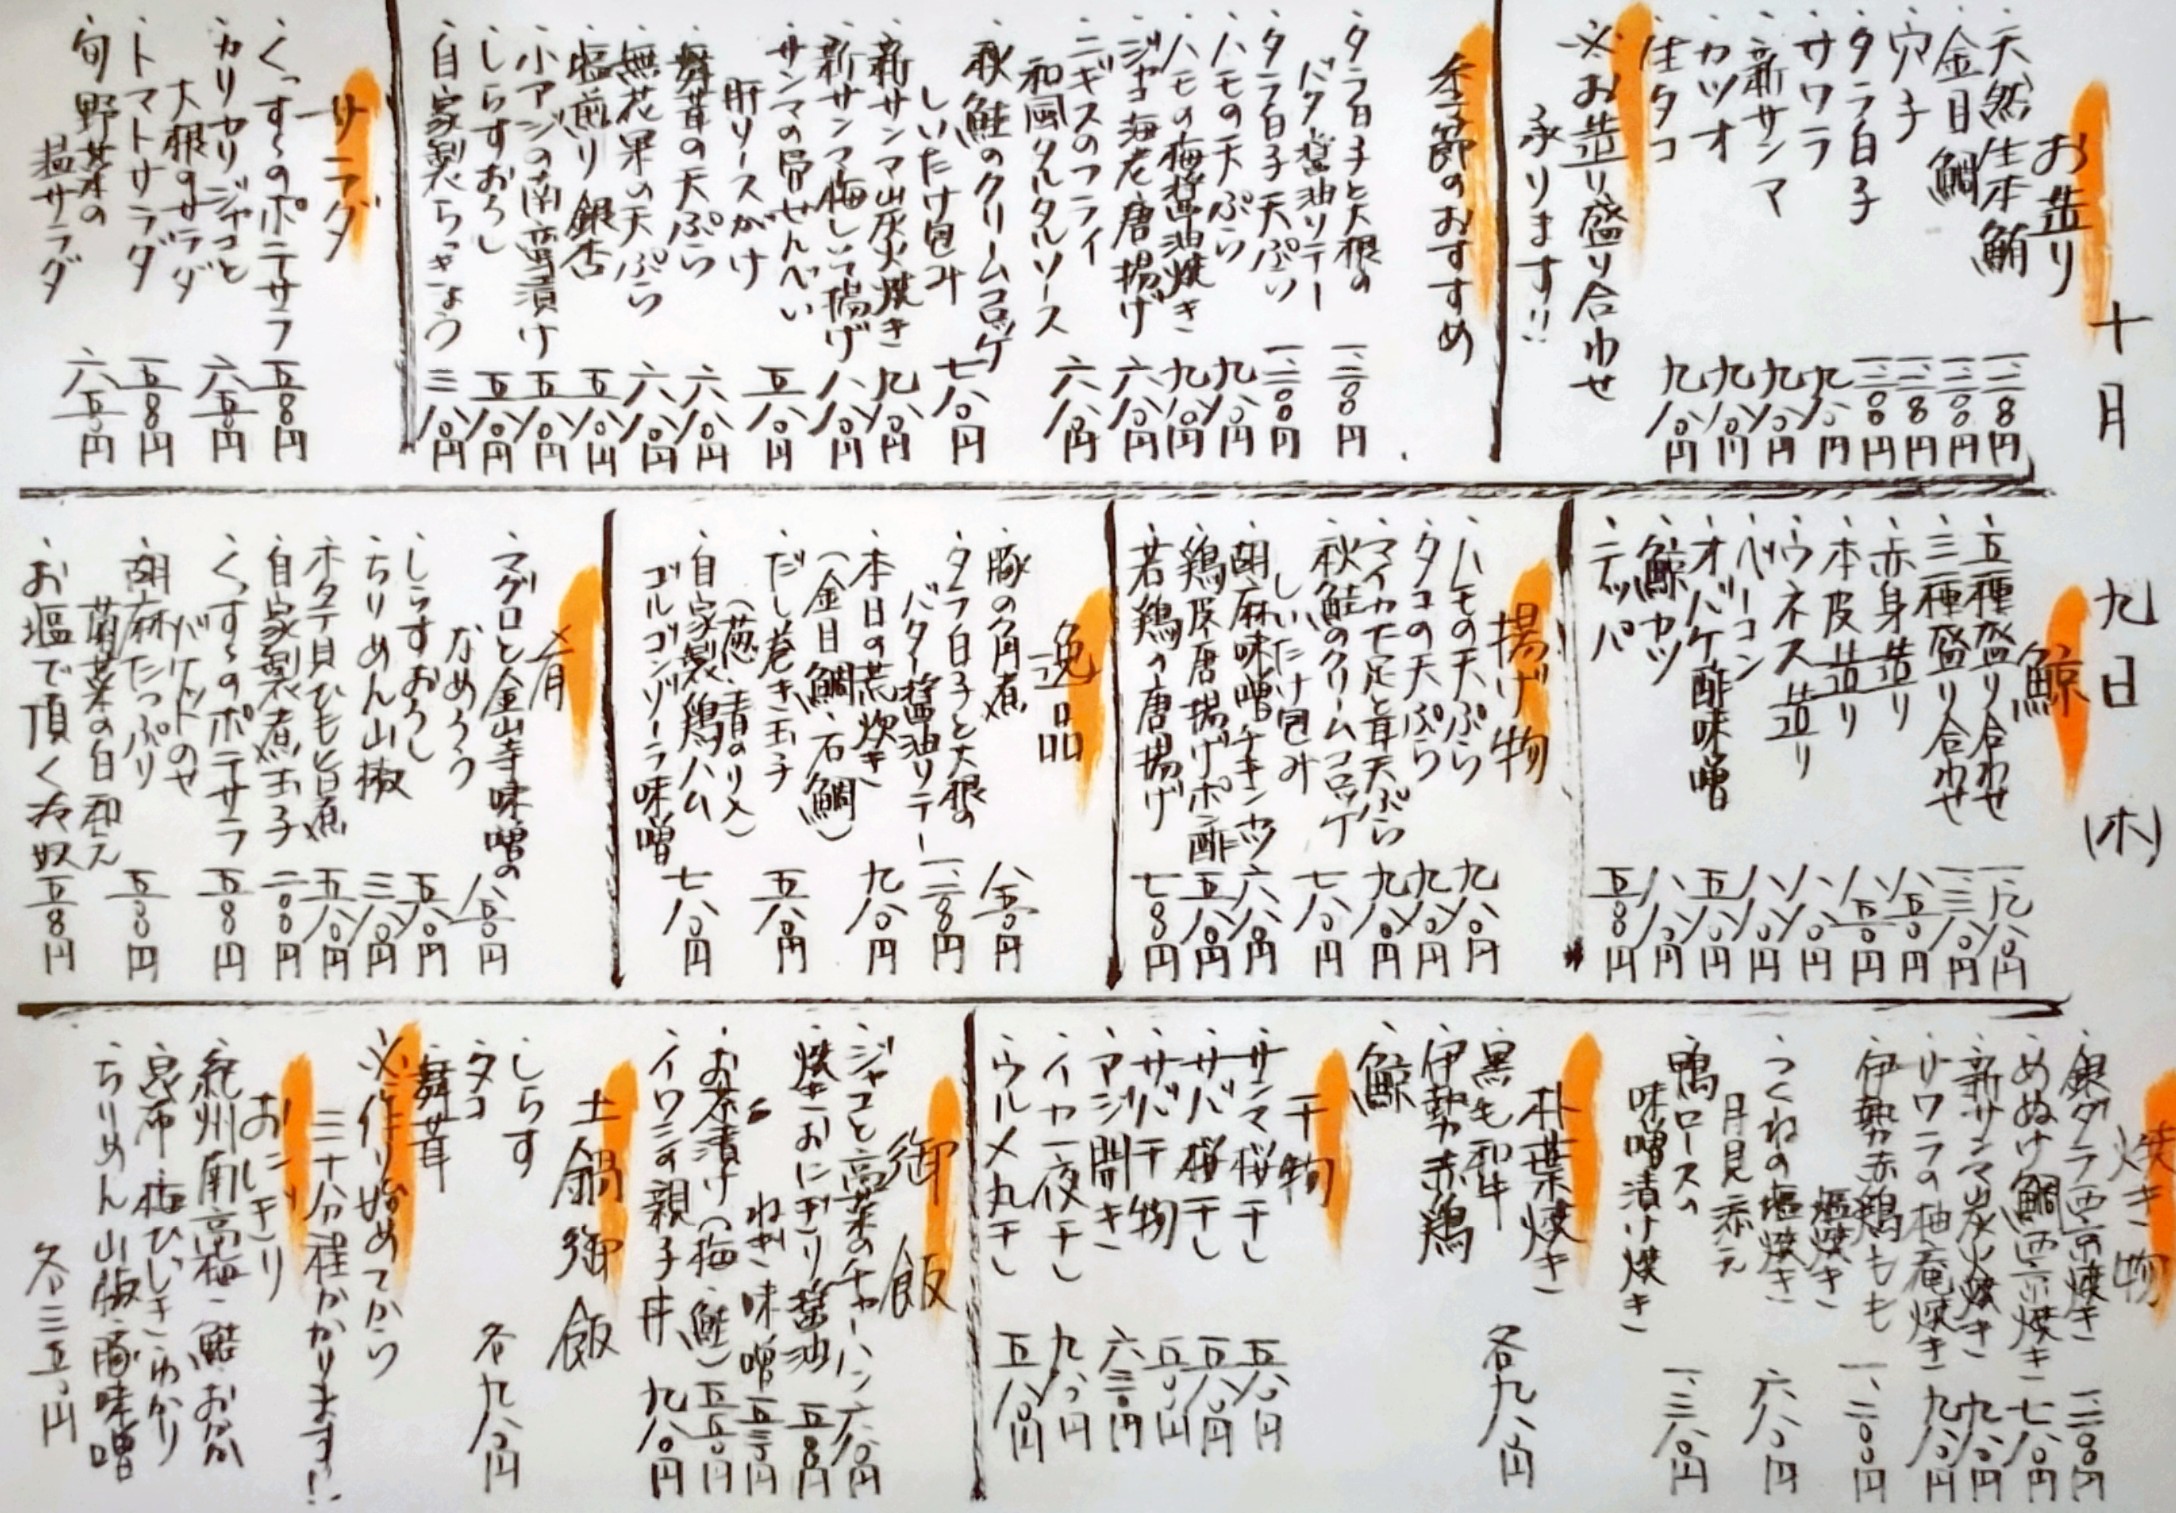 十月 九日 (木)
お造り
・天然生本鮪 一、二八〇円
・金目鯛 一、二〇〇円
・穴子 一、二八〇円
・タラ白子 一、二〇〇円
・サワラ 九八〇円
・新サンマ 九八〇円
・カツオ 九八〇円
・生タコ 九八〇円
※お造り盛り合わせ
承ります!!
季節のおすすめ
・タラ白子と大根の
バタ醤油ソテー 一、二八〇円
・タラ白子天ぷら 一、二〇〇円
・ハモの天ぷら 九八〇円
・ハモの梅醤油焼き 九八〇円
・ジャコ海老唐揚げ 六八〇円
・ニギスのフライ
和風タルタルソース 六八〇円
・秋鮭のクリームコロッケ
しいたけ包み 七八〇円
・新サンマ山灰火焼き 九八〇円
・新サンマ梅しいそ揚げ 八八〇円
・サンマの骨せんべい
肝ソースがけ 五八〇円
・舞茸の天ぷら 六八〇円
・無花果の天ぷら 六八〇円
・塩煎り銀杏 五八〇円
・小アジの南蛮漬け 五八〇円
・しらすおろし 五八〇円
・自家製らっきょう 三八〇円
サラダ
・くっすぅのポテサラ 五八〇円
・カリカリジャコと
大根のサラダ 六五〇円
・トマトサラダ 五八〇円
・旬野菜の
温サラダ 六五〇円
鯨
・五種盛り合わせ 一、九八〇円
・三種盛り合わせ 一、三八〇円
・赤身造り 八五〇円
・本皮造り 八五〇円
・ウネス造り 八八〇円
・ベーコン 八八〇円
・オバケ酢味噌 五八〇円
・鯨カツ 八八〇円
・テッパ 五八〇円
揚げ物
・ハモの天ぷら 九八〇円
・タコの天ぷら 九八〇円
・マイカ下足と茸天ぷら 九八〇円
・秋鮭のクリームコロッケ
しいたけ包み 七八〇円
・胡麻味噌チキンカツ 六八〇円
・鶏皮唐揚げポン酢 五八〇円
・若鶏の唐揚げ 七八〇円
逸品
・豚の角煮 八五〇円
・タラ白子と大根の
バター醤油ソテー 一、二八〇円
・本日の荒炊き
(金目鯛・石鯛) 九八〇円
・だし巻き玉子
(葱・青のり入) 五八〇円
・自家製鶏ハム
ゴルゴンゾーラ味噌 七八〇円
肴
・マグロと金山寺味噌の
なめろう 八五〇円
・しらすおろし 五八〇円
・ちりめん山椒 三八〇円
・ホタテ貝ひも旨煮 五八〇円
・自家製煮玉子 二〇〇円
・くっすぅのポテサラ
バケットのせ 五八〇円
・胡麻たっぷり
菊菜の白和え 五〇〇円
・お塩で頂く冷奴 五八〇円
焼き物
・銀ダラ西京焼き 一、二〇〇円
・めぬけ鯛西京焼き 七八〇円
・新サンマ炭火焼き 九八〇円
・サワラの柚庵焼き 九八〇円
・伊勢赤鶏もも
塩焼き 一、二〇〇円
・つくねの塩焼き
月見添え 六八〇円
・鴨ロースの
味噌漬け焼き 一、三八〇円
朴葉焼き
・黒毛和牛
・伊勢赤鶏
・鯨
各九八〇円
干物
・サンマ桜干し 五八〇円
・サバ桜干し 五八〇円
・サバ干物 五八〇円
・アジ開き 六三〇円
・イカ一夜干し 九八〇円
・ウルメ丸干し 五八〇円
御飯
・ジャコと高菜のチャーハン 六八〇円
・焼きおにぎり醤油 五〇〇円
〃 ねぎ味噌 五三〇円
・お茶漬け(梅・鮭) 五五〇円
・イワシの親子丼 九八〇円
土鍋御飯
・しらす
・タコ
・舞茸
各九八〇円
※作り始めてから
三十分程かかります!!
おにぎり
・紀州南高梅・鮭・おかか
・昆布・梅ひじき・ゆかり
・ちりめん山椒・豚味噌
各三五〇円